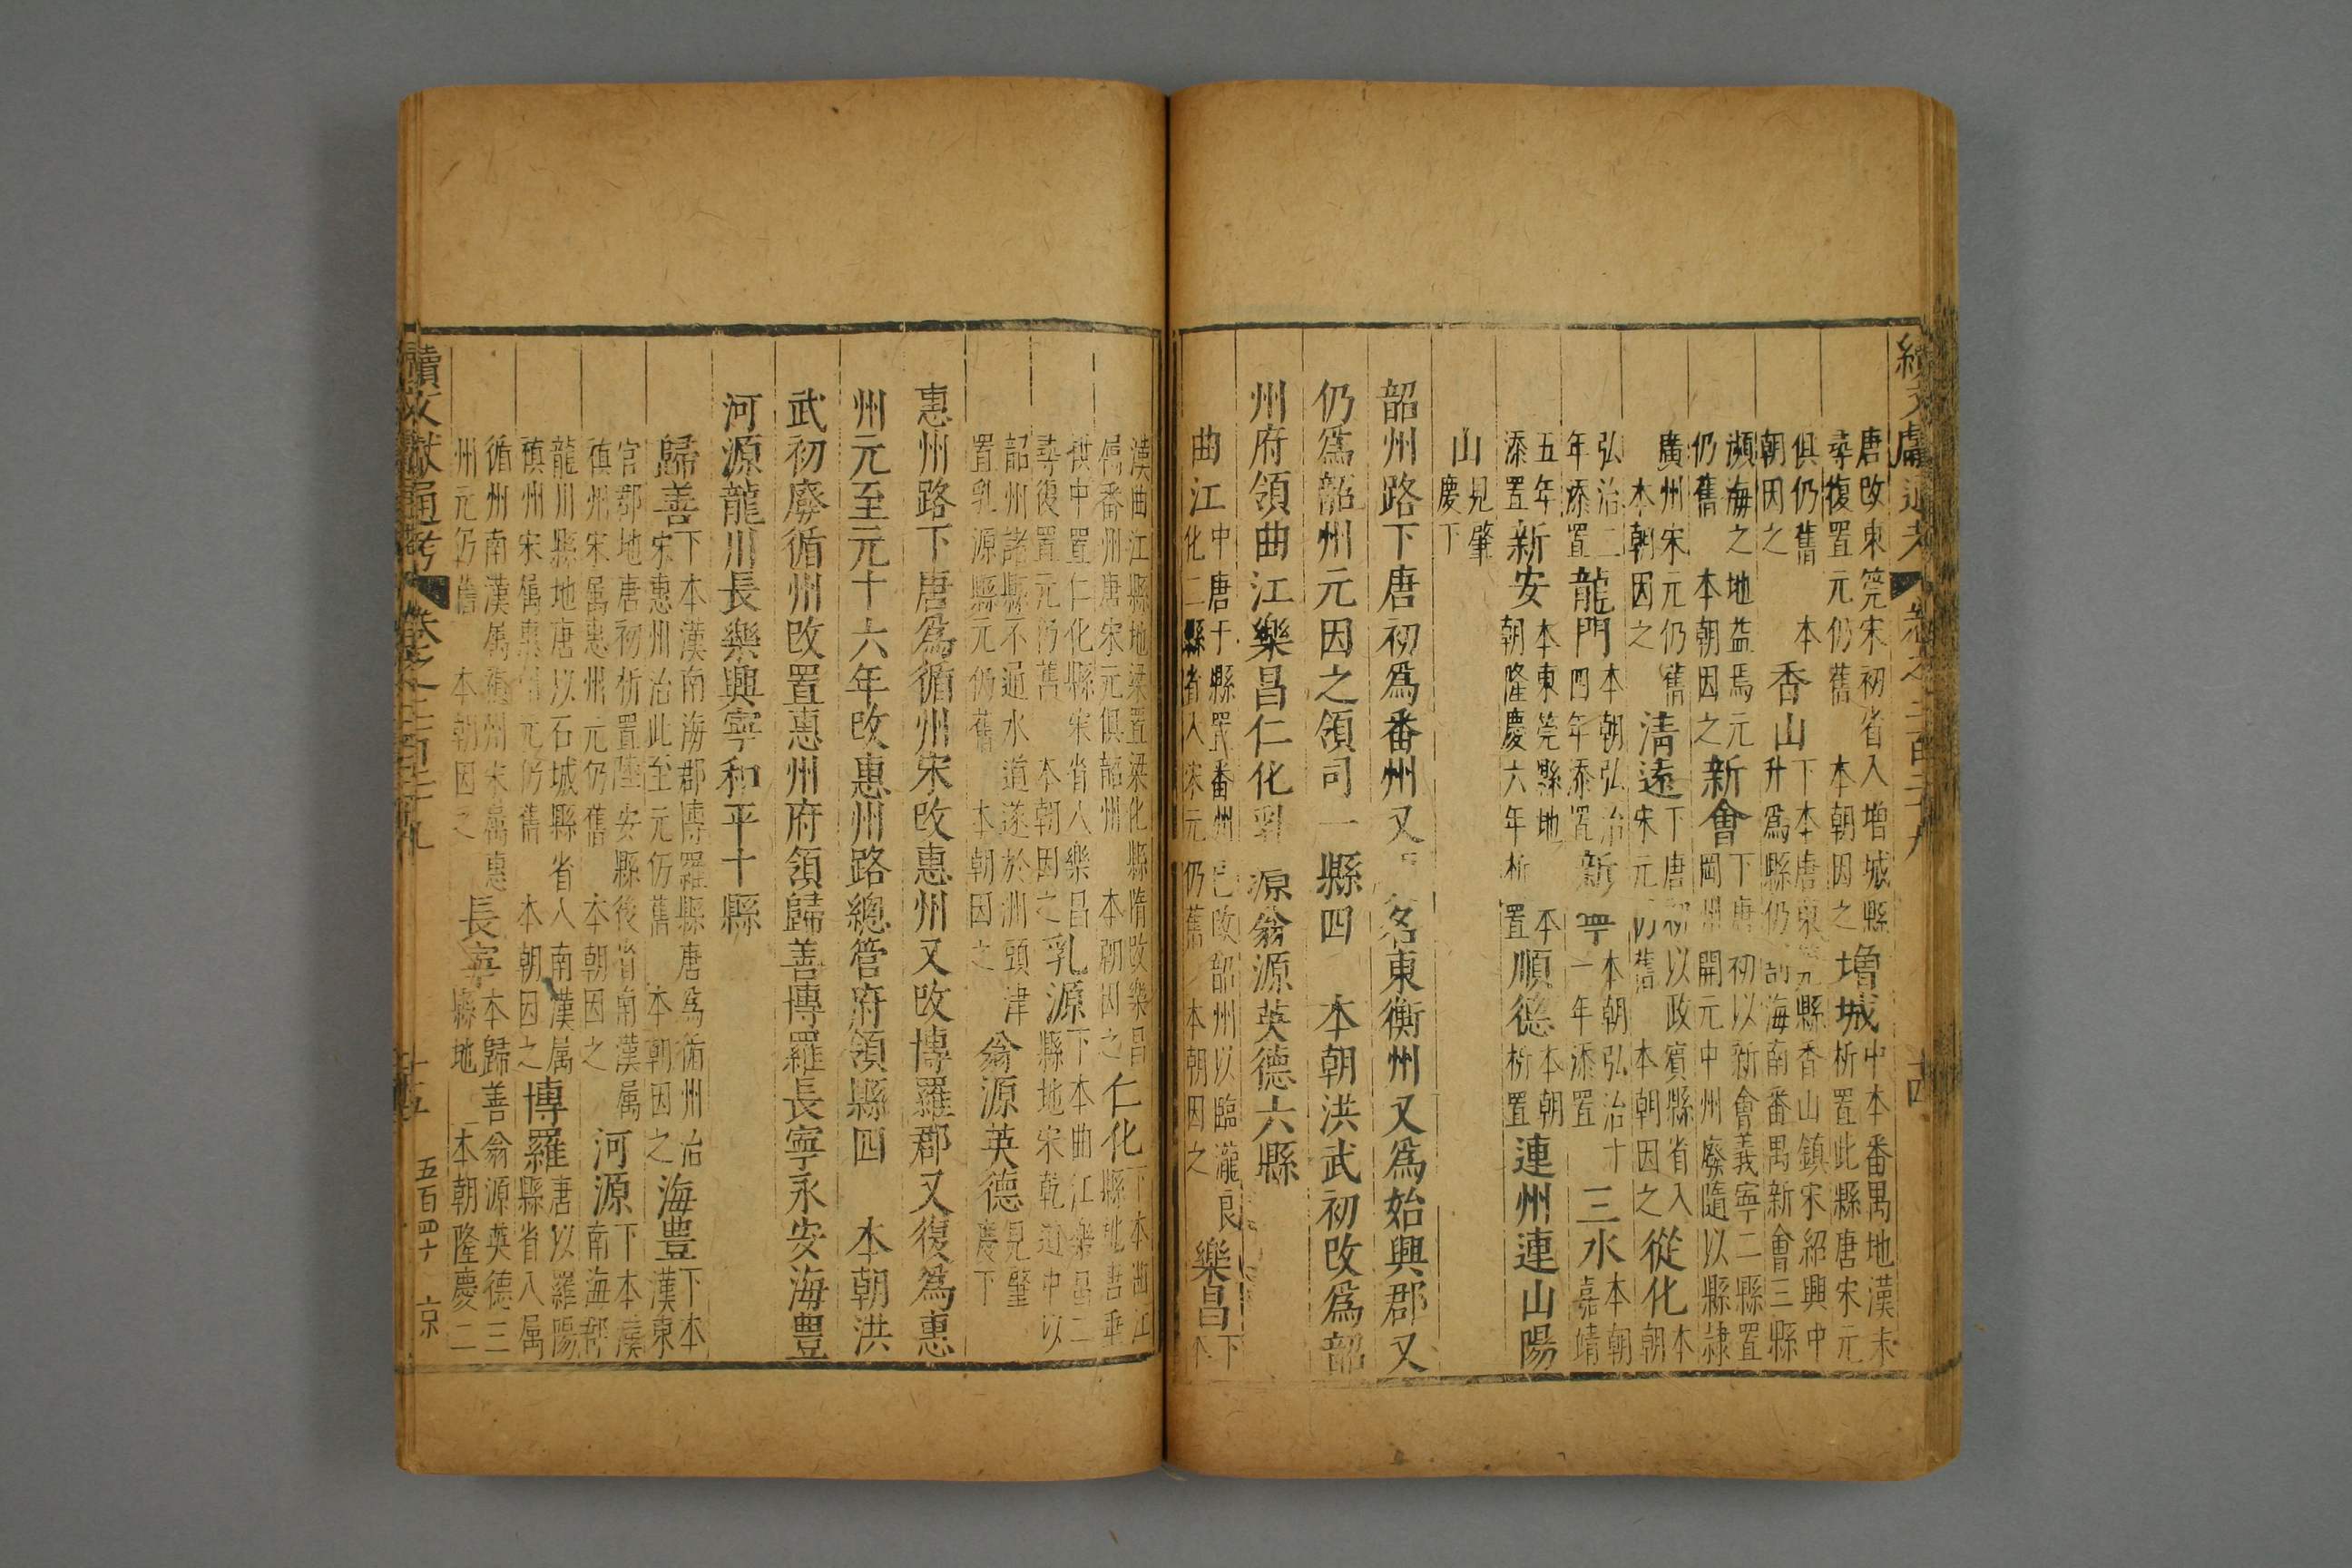 唐改東筦宋初省入增城縣
尋復置元仍舊　本朝因之增城中本番禺地漢末
析置此縣唐宋元
俱仍舊　本
朝因之　香山下本唐東筦縣香山鎮宋紹興中
升爲縣仍 南海南番禺新會三縣
瀕海之地益焉元
仍舊　本朝因之新會下唐初以新會義寧二縣置
岡州開元中州廢隨以縣隷
廣州宋元仍舊
本朝因之　清遠下唐初以政賓縣省入
宋元仍舊　本朝因之從化本
朝
弘治二
年添置龍門本朝弘治
四年添置新寧本朝弘治十
一年添置三水本朝
嘉靖
五年
添置新安本東莞縣地　本
朝隆慶六年析置順德本朝
析置連州連山陽
山見肇
慶下
韶州路下唐初爲番州又名東衡州又爲始興郡又
仍爲韶州元因之領司一縣四　本朝洪武初改爲韶
州府領曲江樂昌仁化乳源翁源英德六縣
曲江中唐于縣置番州已改韶州以臨瀧良
化二縣省入宋元仍舊　本朝因之樂昌下
本
漢曲江縣地梁置梁化縣隋改樂昌
屬番州唐宋元俱韶州　本朝因之仁化下本曲江
縣地唐垂
拱中置仁化縣宋省入樂昌
尋復置元仍舊　本朝因之乳源下本曲江樂昌二
縣地宋乾道中以
韶州諸縣不通水道遂於洲頭津
置乳源縣元仍舊　本朝因之　翁源英德見肇
慶下
惠州路下唐爲循州宋改惠州又改博羅郡又復爲惠
州元至元十六年改惠州路總管府領縣四　本朝洪
武初廢循州改置惠州府領歸善博羅長寧永安海豐
河源龍川長樂興寧和平十縣
歸善下本漢南海郡博羅縣唐爲循州治
宋惠州治此至元仍舊　本朝因之海豐下本
漢東
官郡地唐初析置陸安縣後省南漢属
禎州宋属惠州元仍舊　本朝因之　河源下本漢
南海郡
龍川縣地唐以石城縣省入南漢属
禎州宋属惠州元仍舊　本朝因之博羅唐以羅陽
縣省入属
循州南漢属禎州宋属惠
州元仍舊　本朝因之　長寧本歸善翁源英德三
縣地　本朝隆慶二
續文獻通考　卷之二百二十九　十四
續文獻通考　卷之二百二十九　五百四十　京